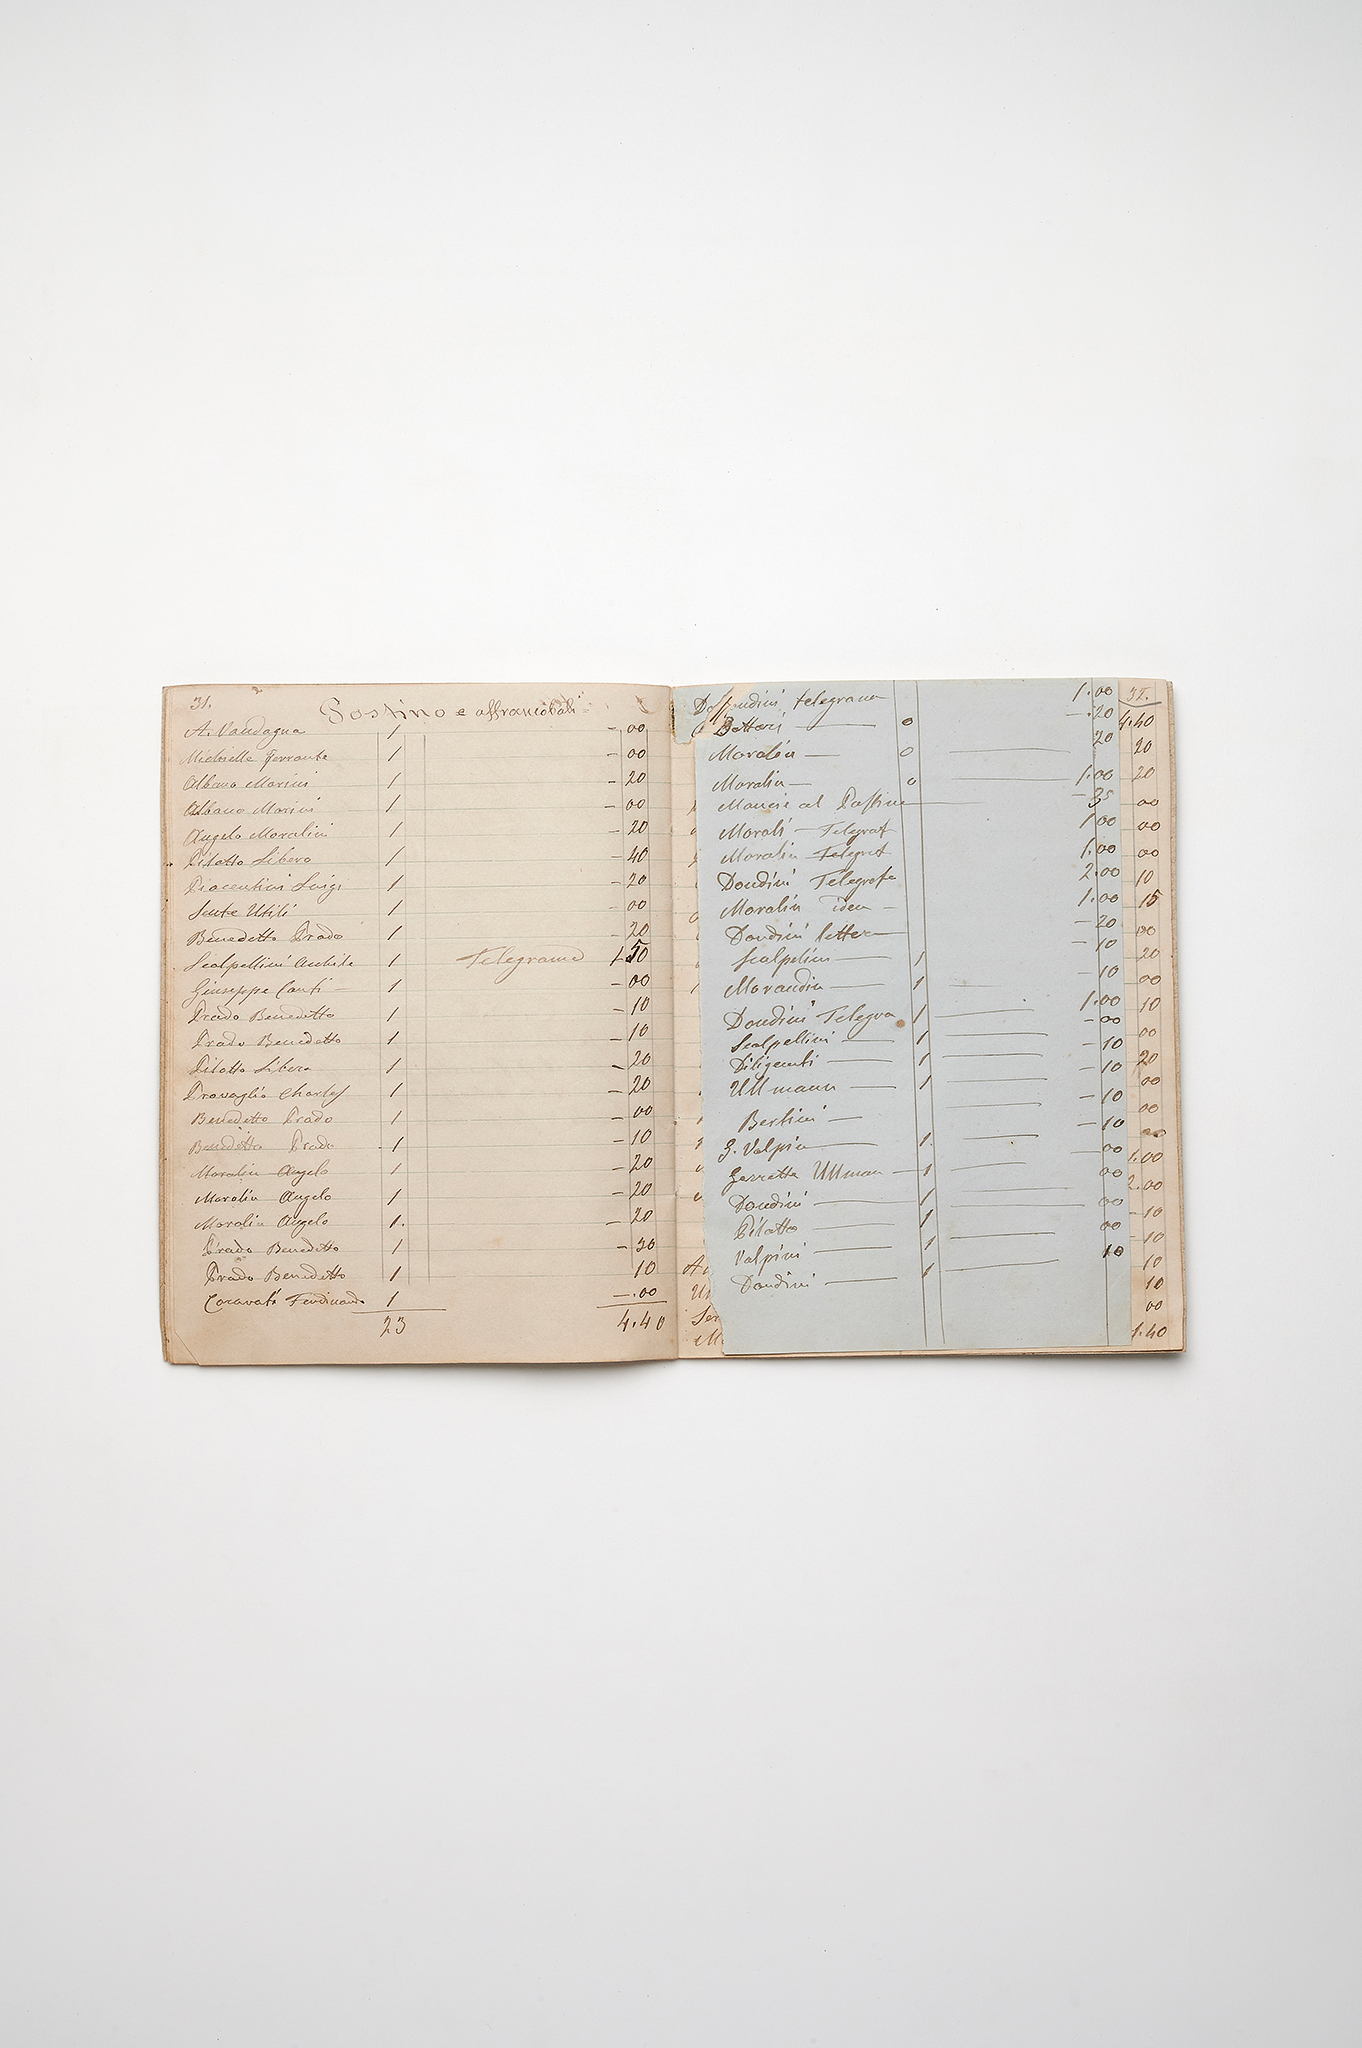 31.
Postino e affrancoboli
A. Vandagna 1 - 00
Michielle Ferrante 1 - 00
Albano Marini 1 - 20
Albano Marini 1 - 00
Angelo Moralin 1 - 20
Pilatto Libero 1 - 40
Piacentini Luigi 1 - 20
1 - 00
Benedetto Prado 1 - 20
Scalpellini Achile 1 Telegrama 1.50
Giuseppe Conti - 1 - 00
Prado Benedetto 1 - 10
Prado Benedetto 1 - 10
Pilatto Libero 1 - 20
Travaglia Charles 1 - 20
Benedetto Prado 1 - 00
Benedetto Prado 1 - 10
Moralin Angelo 1 - 20
Moralin Angelo 1 - 20
Moralin Angelo 1. - 20
Prado Benedetto 1 - 30
Prado Benedetto 1 10
Caravati Ferdinando 1 -.00
23 4.40
telegrama 1.00
Bottari 0 -.20
Moralin 0 20
Moralin 0 1.00
Mancie al Postino - 35
Morali Telegraf 1.00
Moralin Telegraf 1.00
Dondini Telegrafo 2.00
Moralin idem 1.00
Dondini lettera - 20
Scalpelini 1 - 10
Morandin 1 - 10
Dondini Telegra 1 1.00
Scalpellini 1 - 00
Diligenti 1 - 10
Ullmann 1 - 10
Bertini - 10
G. Valpin 1 - 10
Ullman 1 - 00
Dondini 1 00
Pilatto 1 00
Valpini 1 00
Dondini 1 10
32.
4.40
20
20
00
00
00
10
15
00
20
00
10
00
20
00
00
00
1.00
2.00
- 10
- 10
10
10
00
1.40